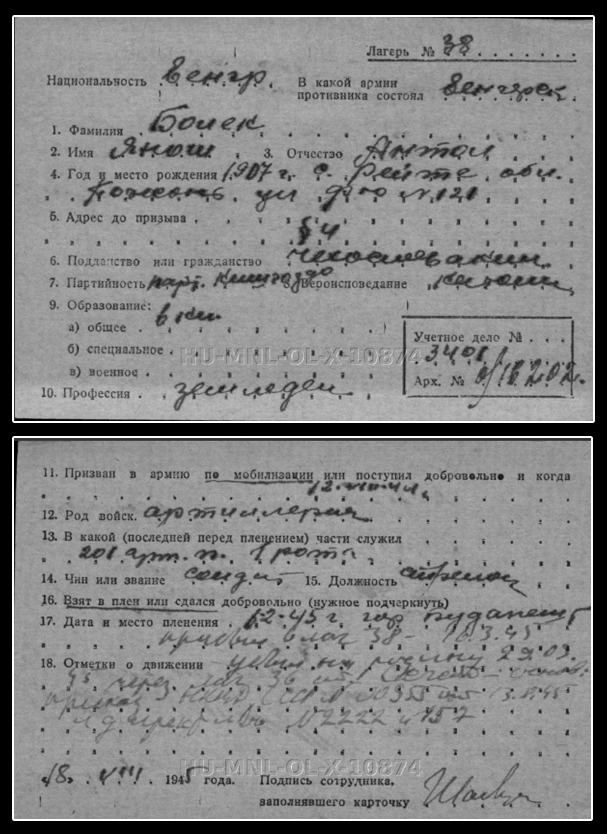 Лагерь № 38
Национальность Венгр. В какой армии
противника состоял Венгерск.
1. Фамилия Болек
2. Имя Янош 3. Отчество Антал
4. Год и место рождения 1907 г. с. Рейте обл.
ул №121
5. Адрес до призыва
6. Подданство или гражданство Чехословакии
7. Партийность парт. 8. Вероисповедание католик
9. Образование:
а) общее 6 кл.
б) специальное
в) военное
Учетное дело №
3401
Арх. №
10. Профессия земледел
HU-MNL-OL-X-10874
11. Призван в армию по мобилизации или поступил добровольно и когда
12. Род войск. артиллерия
13. В какой (последней перед пленением) части служил
201 арт. п. 1 рота
14. Чин или звание солдат 15. Должность стрелок
16. Взят в плен или сдался добровольно (нужное подчеркнуть)
17. Дата и место пленения 12.2.45 г. гор Будапешт
прибыл в лаг 38 - 16.3.45
18. Отметки о движении убыл на родину 29.09.
45 через лаг 36 ст. основ.
приказ НКВД СССР №
и директивы № 2222 и 157
HU-MNL-OL-X-10874
18. VIII 1945 года. Подпись сотрудника,
заполнявшего карточку